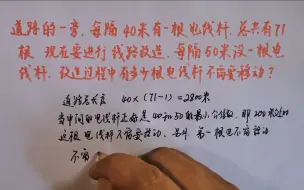 道路的一旁,每隔40米有一根电线杆,总共有71
根,现在要进行线路改造,每隔50米设一根电
线杆,改造过程中有多少根电线杆不需要移动?
道路总长度 40×(71-1)=2800米
当中间的电线杆正好是40和50的最小公倍数,即200米处时
这根电线杆不需要移动,另外,第一根也不需移动
不需